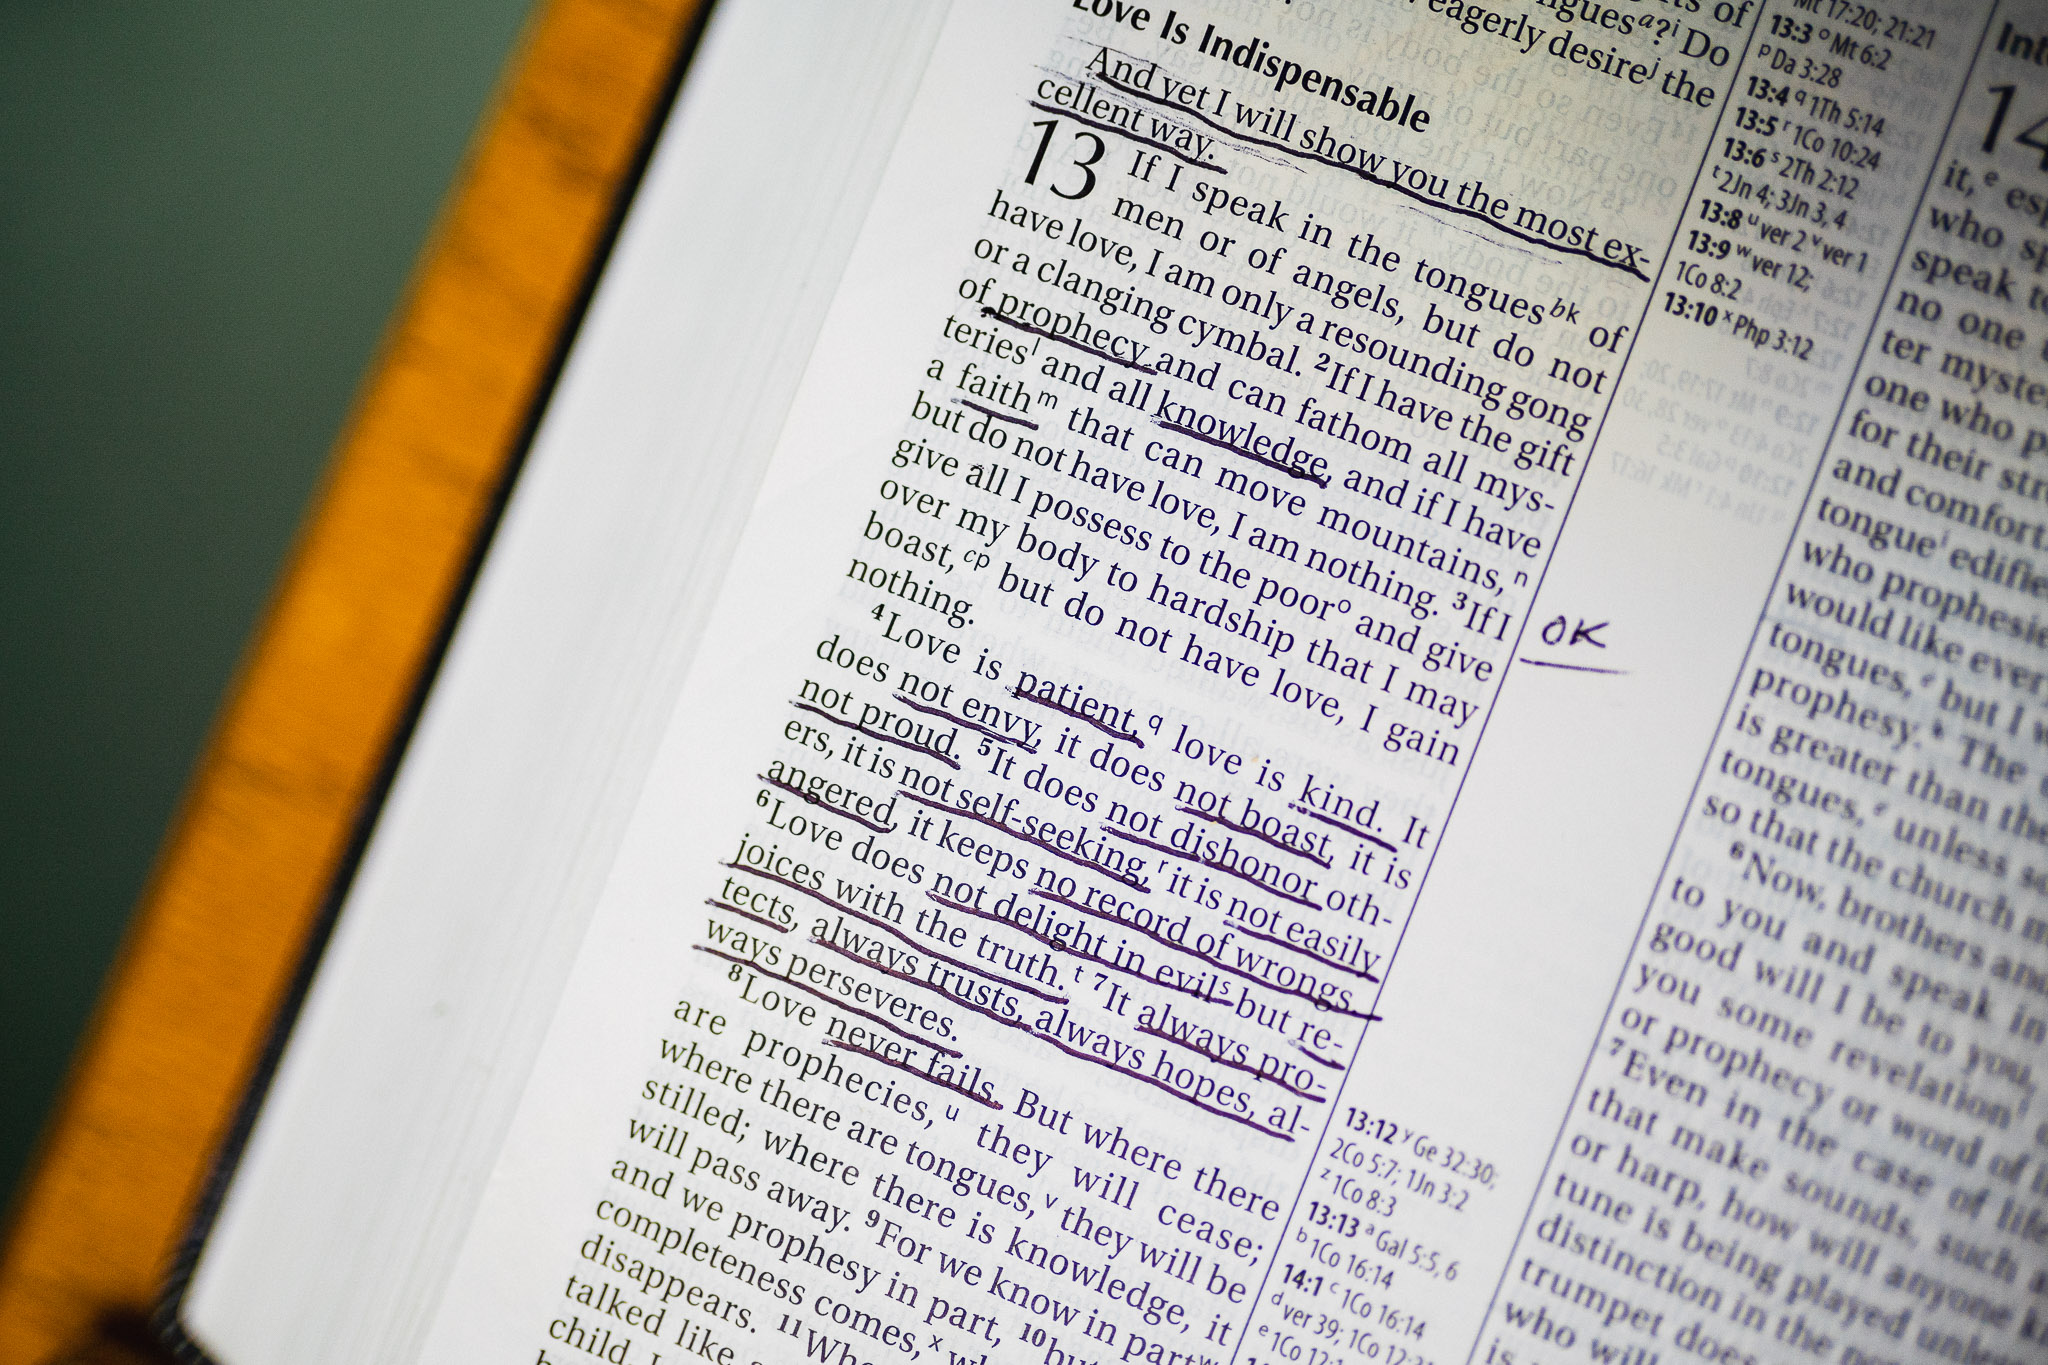 eagerly desireʲ the
Love Is Indispensable
And yet I will show you the most ex-
cellent way.
13 If I speak in the tonguesᵇᵏ of
men or of angels, but do not
have love, I am only a resounding gong
or a clanging cymbal. ²If I have the gift
of prophecy and can fathom all mys-
teriesˡ and all knowledge, and if I have
a faithᵐ that can move mountains,ⁿ
but do not have love, I am nothing. ³If I
give all I possess to the poorᵒ and give
over my body to hardship that I may
boast,ᶜᵖ but do not have love, I gain
nothing.
⁴Love is patient,q love is kind. It
does not envy, it does not boast, it is
not proud. ⁵It does not dishonor oth-
ers, it is not self-seeking,ʳ it is not easily
angered, it keeps no record of wrongs.
⁶Love does not delight in evilˢ but re-
joices with the truth.ᵗ ⁷It always pro-
tects, always trusts, always hopes, al-
ways perseveres.
⁸Love never fails. But where there
are prophecies,ᵘ they will cease;
where there are tongues,ᵛ they will be
stilled; where there is knowledge, it
will pass away. ⁹For we know in partʷ
and we prophesy in part, ¹⁰but
completeness comes,ˣ
disappears. ¹¹
talked like
child,
Mt 17:20; 21:21
13:3 ᵒ Mt 6:2
ᵖ Da 3:28
13:4 q 1Th 5:14
13:5 ʳ 1Co 10:24
13:6 ˢ 2Th 2:12
ᵗ 2Jn 4; 3Jn 3, 4
13:8 ᵘ ver 2 ᵛ ver 1
13:9 ʷ ver 12;
1Co 8:2
13:10 ˣ Php 3:12
OK
13:12 ʸ Ge 32:30;
2Co 5:7; 1Jn 3:2
ᶻ 1Co 8:3
13:13 ᵃ Gal 5:5, 6
ᵇ 1Co 16:14
14:1 ᶜ 1Co 16:14
ᵈ ver 39; 1Co
ᵉ 1Co
14
it,ᵉ
who
speak
no one
ter
one who
for their
and comfort.
tongueⁱ
who
would like
tongues,ᵉ but I
prophesy.ᵏ The
is greater than
tongues,ᵉ unless
so that the church
⁶Now, brothers
to you and speak in
good will I be to you,
you some revelationˡ
or prophecy or word of
⁷Even in the case of
that make sounds, such
or harp, how will anyone
tune is being played
distinction in the
trumpet does
who will
is